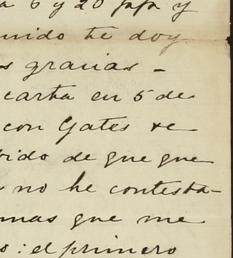 a 6 y 20 ppp y
nido te doy
s gracias -
carta en 5 de
con Gates &c
bido de que que
no he contesta-
mas que me
o: el primero